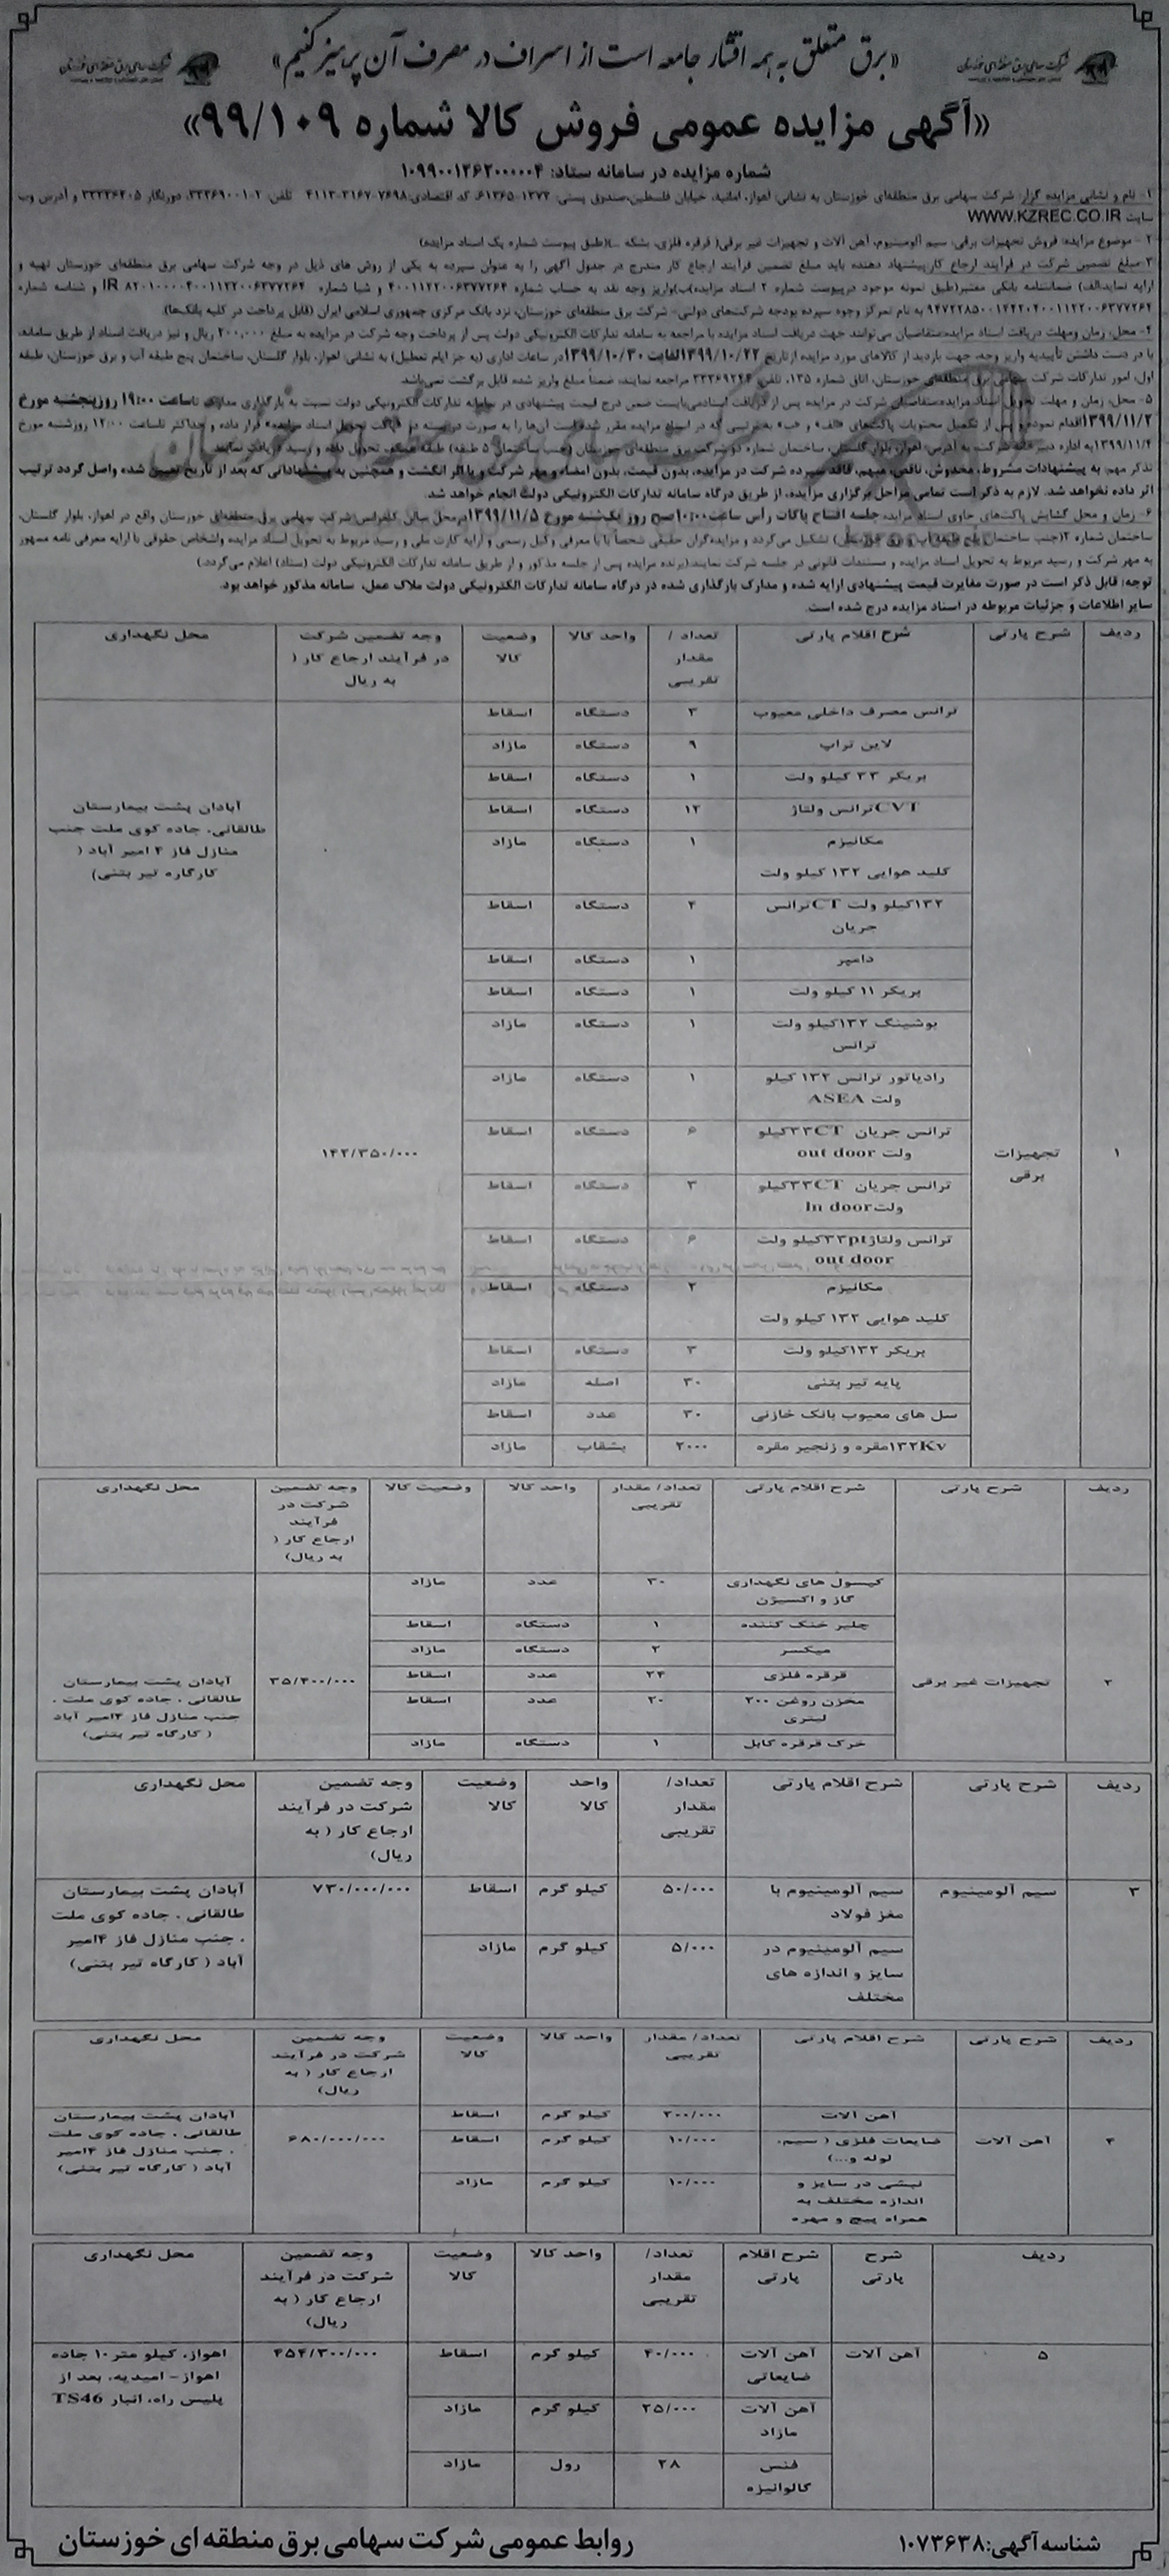 «برق متعلق به همه اقشار جامعه است از اسراف در مصرف آن پرهیز کنیم»
شرکت سهامی برق منطقه ای خوزستان
شرکت سهامی برق منطقه ای خوزستان
«آگهی مزایده عمومی فروش کالا شماره ۹۹/۱۰۹»
شماره مزایده در سامانه ستاد: ۱۰۹۹۰۰۱۲۶۲۰۰۰۰۰۴
۱- نام و نشانی مزایده گزار: شرکت سهامی برق منطقه‌ای خوزستان به نشانی: اهواز، امانیه، خیابان فلسطین، صندوق پستی: ۱۳۷۳-۶۱۳۶۵، کد اقتصادی: ۷۶۹۸-۳۱۶۷-۴۱۱۳ تلفن: ۲-۳۳۳۶۹۰۰۱، دورنگار ۳۳۳۳۶۲۰۵ و آدرس وب
سایت WWW.KZREC.CO.IR
۲- موضوع مزایده: فروش تجهیزات برقی، سیم آلومینیوم، آهن آلات و تجهیزات غیر برقی( قرقره فلزی، بشکه ...)(طبق پیوست شماره یک اسناد مزایده)
۳-مبلغ تضمین شرکت در فرآیند ارجاع کار:پیشنهاد دهنده باید مبلغ تضمین فرآیند ارجاع کار مندرج در جدول آگهی را به عنوان سپرده به یکی از روش های ذیل در وجه شرکت سهامی برق منطقه‌ای خوزستان تهیه و
ارایه نماید:الف) ضمانتنامه بانکی معتبر(طبق نمونه موجود در پیوست شماره ۲ اسناد مزایده)ب)واریز وجه نقد به حساب شماره ۴۰۰۱۱۲۲۰۰۶۳۷۷۲۶۴ و شبا شماره IR ۸۲۰۱۰۰۰۰۴۰۰۱۱۲۲۰۰۶۳۷۷۲۶۴ و شناسه شماره
به نام تمرکز وجوه سپرده بودجه شرکت‌های دولتی- شرکت برق منطقه‌ای خوزستان، نزد بانک مرکزی جمهوری اسلامی ایران (قابل پرداخت در کلیه بانک‌ها).
۴- محل، زمان ومهلت دریافت اسناد مزایده:متقاضیان می‌توانند جهت دریافت اسناد مزایده با مراجعه به سامانه تدارکات الکترونیکی دولت پس از پرداخت وجه شرکت در مزایده به مبلغ ۲۰۰,۰۰۰ ریال و نیز دریافت اسناد از طریق سامانه،
با در دست داشتن تأییدیه واریز وجه، جهت بازدید از کالاهای مورد مزایده ازتاریخ ۱۳۹۹/۱۰/۲۲لغایت ۱۳۹۹/۱۰/۳۰در ساعات اداری (به جز ایام تعطیل) به نشانی: اهواز، بلوار گلستان، ساختمان پنج طبقه آب و برق خوزستان، طبقه
اول، امور تدارکات شرکت سهامی برق منطقه‌ای خوزستان، اتاق شماره ۱۳۵، تلفن: ۳۳۳۶۹۲۴۴ مراجعه نمایند، ضمناً مبلغ واریز شده قابل برگشت نمی‌باشد.
۵- محل، زمان و مهلت تحویل اسناد مزایده:متقاضیان شرکت در مزایده پس از دریافت اسنادمی‌بایست ضمن درج قیمت پیشنهادی در سامانه تدارکات الکترونیکی دولت نسبت به بارگذاری مدارک تاساعت ۱۹:۰۰ روزپنجشنبه مورخ
۱۳۹۹/۱۱/۲اقدام نموده و پس از تکمیل محتویات پاکت‌های «الف» و «ب» به ترتیبی که در اسناد مزایده مقرر شده است آن‌ها را به صورت دربسته در «پاکت تحویل اسناد مزایده» قرار داده و حداکثر تاساعت ۱۲:۰۰ روزشنبه مورخ
۱۳۹۹/۱۱/۴به اداره دبیرخانه شرکت به آدرس: اهواز، بلوار گلستان، ساختمان شماره دو شرکت برق منطقه‌ای خوزستان (جنب ساختمان ۵ طبقه) طبقه همکف، تحویل داده و رسید دریافت نمایند.
تذکر مهم: به پیشنهادات مشروط، مخدوش، ناقص، مبهم، فاقد سپرده شرکت در مزایده، بدون قیمت، بدون امضاء و مهر شرکت و یا اثر انگشت و همچنین به پیشنهاداتی که بعد از تاریخ تعیین شده واصل گردد ترتیب
اثر داده نخواهد شد. لازم به ذکر است تمامی مراحل برگزاری مزایده، از طریق درگاه سامانه تدارکات الکترونیکی دولت انجام خواهد شد.
۶- زمان و محل گشایش پاکت‌های حاوی اسناد مزایده: جلسه افتتاح پاکات رأس ساعت۱۰:۰۰صبح روز یک‌شنبه مورخ ۱۳۹۹/۱۱/۵درمحل سالن کنفرانس شرکت سهامی برق منطقه‌ای خوزستان واقع در اهواز، بلوار گلستان،
ساختمان شماره ۲(جنب ساختمان پنج طبقه آب و برق خوزستان) تشکیل می‌گردد و مزایده‌گران حقیقی شخصاً یا با معرفی وکیل رسمی و ارایه کارت ملی و رسید مربوط به تحویل اسناد مزایده واشخاص حقوقی با ارایه معرفی نامه ممهور
به مهر شرکت و رسید مربوط به تحویل اسناد مزایده و مستندات قانونی در جلسه شرکت نمایند.(برنده مزایده پس از جلسه مذکور و از طریق سامانه تدارکات الکترونیکی دولت (ستاد) اعلام می‌گردد.)
توجه: قابل ذکر است در صورت مغایرت قیمت پیشنهادی ارایه شده و مدارک بارگذاری شده در درگاه سامانه تدارکات الکترونیکی دولت ملاک عمل، سامانه مذکور خواهد بود.
سایر اطلاعات و جزئیات مربوطه در اسناد مزایده درج شده است.
ردیف شرح پارتی شرح اقلام پارتی تعداد / مقدار تقریبی واحد کالا وضعیت کالا وجه تضمین شرکت در فرآیند ارجاع کار ( به ریال محل نگهداری
ترانس مصرف داخلی معیوب ۳ دستگاه اسقاط
لاین تراپ ۹ دستگاه مازاد
بریکر ۳۳ کیلو ولت ۱ دستگاه اسقاط
CVTترانس ولتاژ ۱۲ دستگاه اسقاط
آبادان پشت بیمارستان
طالقانی، جاده کوی ملت جنب
منازل فاز ۴ امیر آباد (
کارگاره تیر بتنی)
مکانیزم ۱ دستگاه مازاد
کلید هوایی ۱۳۲ کیلو ولت
۱۳۲کیلو ولت CTترانس ۴ دستگاه اسقاط
جریان
دامپر ۱ دستگاه اسقاط
بریکر ۱۱ کیلو ولت ۱ دستگاه اسقاط
بوشینگ ۱۳۲کیلو ولت ۱ دستگاه مازاد
ترانس
رادیاتور ترانس ۱۳۲ کیلو ۱ دستگاه مازاد
ولت ASEA
ترانس جریان ۳۳CTکیلو ۶ دستگاه اسقاط
ولت out door
۱ تجهیزات برقی ۱۴۲/۳۵۰/۰۰۰
ترانس جریان ۳۳CTکیلو ۳ دستگاه اسقاط
ولتIn door
ترانس ولتاژ۳۳ptکیلو ولت ۶ دستگاه اسقاط
out door
مکانیزم ۲ دستگاه اسقاط
کلید هوایی ۱۳۲ کیلو ولت
بریکر ۱۳۲کیلو ولت ۳ دستگاه اسقاط
پایه تیر بتنی ۳۰ اصله مازاد
سل های معیوب بانک خازنی ۳۰ عدد اسقاط
۱۳۲Kvمقره و زنجیر مقره ۲۰۰۰ بشقاب مازاد
ردیف شرح پارتی شرح اقلام پارتی تعداد/ مقدار تقریبی واحد کالا وضعیت کالا وجه تضمین شرکت در فرآیند ارجاع کار ( به ریال) محل نگهداری
کپسول های نگهداری ۳۰ عدد مازاد
گاز و اکسیژن
چلیر خنک کننده ۱ دستگاه اسقاط
میکسر ۲ دستگاه مازاد
۲ تجهیزات غیر برقی قرقره فلزی ۲۴ عدد اسقاط ۳۵/۴۰۰/۰۰۰
آبادان پشت بیمارستان
طالقانی . جاده کوی ملت .
جنب منازل فاز ۴امیر آباد
( کارگاه تیر بتنی)
مخزن روغن ۲۰۰ ۲۰ عدد اسقاط
لیتری
خرک قرقره کابل ۱ دستگاه مازاد
ردیف شرح پارتی شرح اقلام پارتی تعداد/ مقدار تقریبی واحد کالا وضعیت کالا وجه تضمین شرکت در فرآیند ارجاع کار ( به ریال) محل نگهداری
۳ سیم آلومینیوم سیم آلومینیوم با ۵۰/۰۰۰ کیلو گرم اسقاط ۷۳۰/۰۰۰/۰۰۰
مغز فولاد
آبادان پشت بیمارستان
طالقانی . جاده کوی ملت
. جنب منازل فاز ۴امیر
آباد ( کارگاه تیر بتنی)
سیم آلومینیوم در ۵/۰۰۰ کیلو گرم مازاد
سایز و اندازه های
مختلف
ردیف شرح پارتی شرح اقلام پارتی تعداد/ مقدار تقریبی واحد کالا وضعیت کالا وجه تضمین شرکت در فرآیند ارجاع کار ( به ریال) محل نگهداری
آهن آلات ۲۰۰/۰۰۰ کیلو گرم اسقاط
۴ آهن آلات ضایعات فلزی ( سیم، ۱۰/۰۰۰ کیلو گرم اسقاط ۶۸۰/۰۰۰/۰۰۰
لوله و...)
آبادان پشت بیمارستان
طالقانی . جاده کوی ملت
. جنب منازل فاز ۴امیر
آباد ( کارگاه تیر بتنی)
نبشی در سایز و ۱۰/۰۰۰ کیلو گرم مازاد
اندازه مختلف به
همراه پیچ و مهره
ردیف شرح پارتی شرح اقلام پارتی تعداد/ مقدار تقریبی واحد کالا وضعیت کالا وجه تضمین شرکت در فرآیند ارجاع کار ( به ریال) محل نگهداری
۵ آهن آلات آهن آلات ۴۰/۰۰۰ کیلو گرم اسقاط ۴۵۴/۳۰۰/۰۰۰
ضایعاتی
اهواز، کیلو متر ۱۰ جاده
اهواز - امیدیه، بعد از
پلیس راه، انبار TS46
آهن آلات ۲۵/۰۰۰ کیلو گرم مازاد
مازاد
فنس ۲۸ رول مازاد
گالوانیزه
شناسه آگهی:۱۰۷۳۶۳۸
روابط عمومی شرکت سهامی برق منطقه ای خوزستان